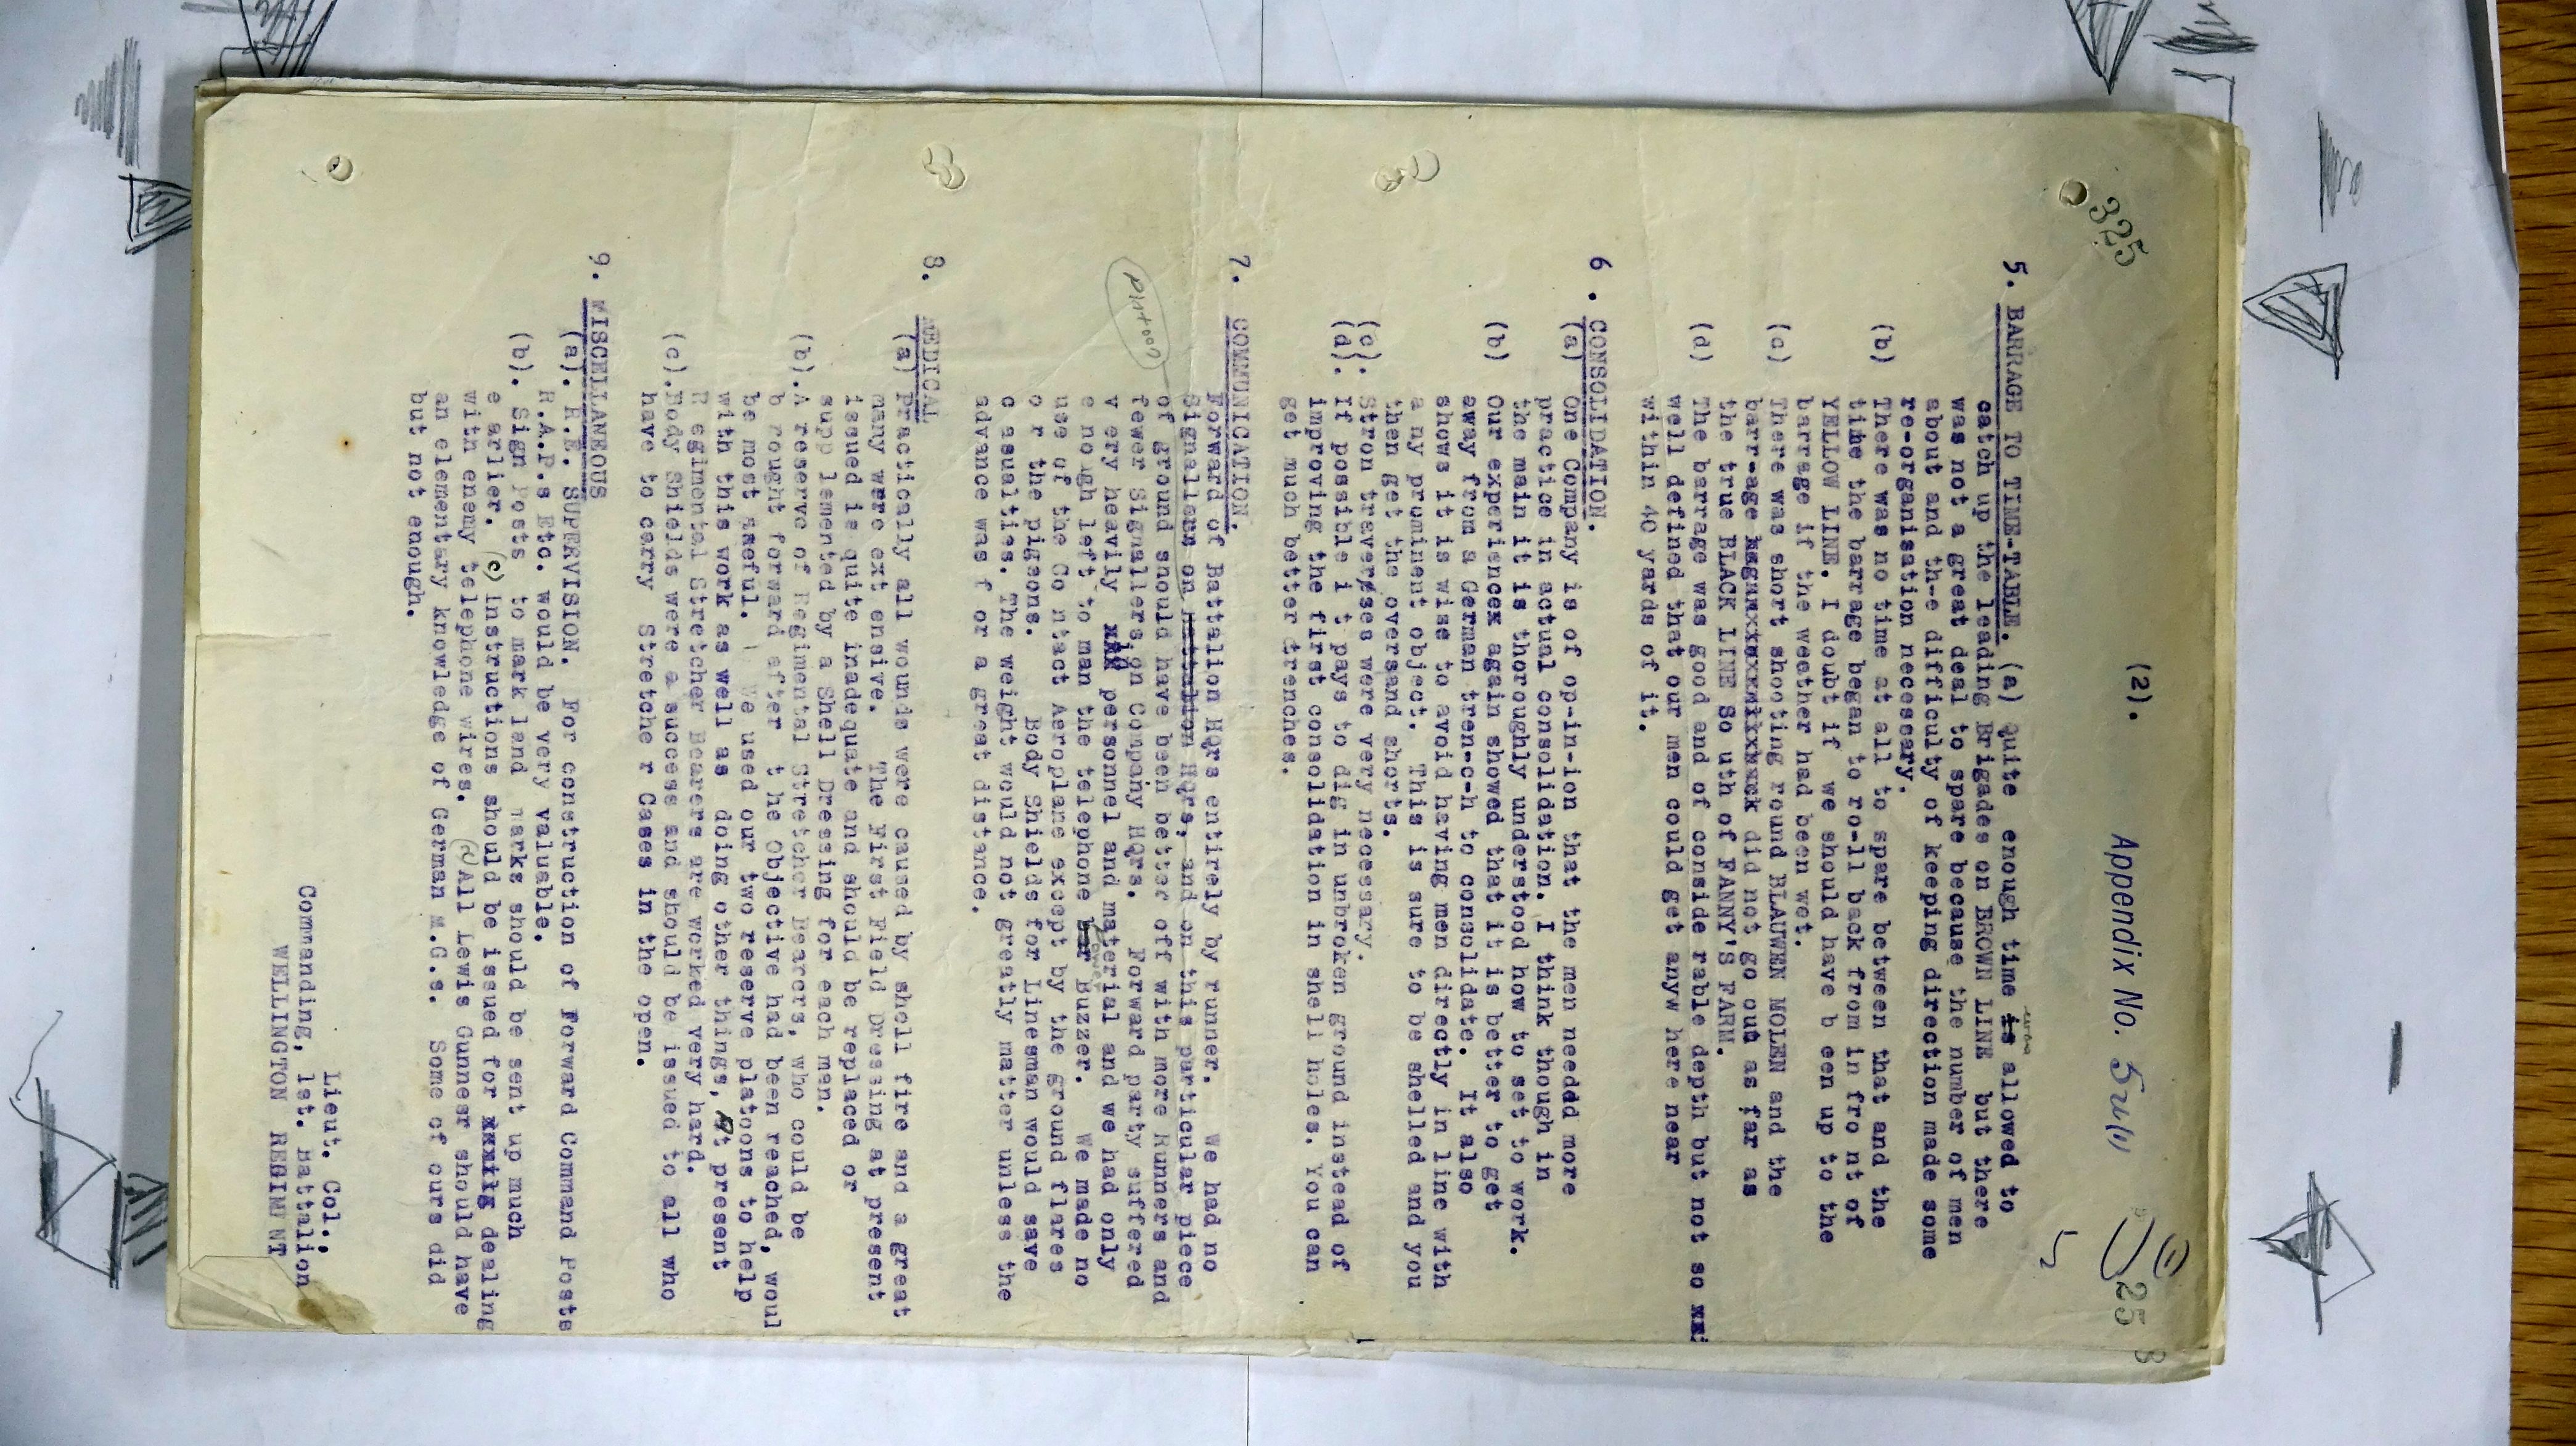 325
(2).
Appendix No. 5
25
5
5. BARRAGE TO TIME-TABLE. (a) Quite enough time is allowed to
catch up the leading Brigades on BROWN LINE but there
was not a great deal to spare because the number of men
about and th-e difficulty of keeping direction made some
re-organisation necessary.
(b) There was no time at all to spare between that and the
time the barrage began to ro-ll back from in fro nt of
YELLOW LINE. I doubt if we should have b een up to the
barrage if the weather had been wet.
(c) There was short shooting round BLAUWEN MOLEN and the
barr-age did not go out as far as
the true BLACK LINE So uth of FANNY'S FARM.
(d) The barrage was good and of conside rable depth but not so
well defined that our men could get anyw here near
within 40 yards of it.
6. CONSOLIDATION.
(a) One Company is of op-in-ion that the men needed more
practice in actual consolidation. I think though in
the main it is thoroughly understood how to set to work.
(b) Our experiencex again showed that it is better to get
away from a German tren-c-h to consolidate. It also
shows it is wise to avoid having men directly in line with
a ny prominent object. This is sure to be shelled and you
then get the oversand shorts.
(c). Stron traverses were very necessary.
(d). If possible i t pays to dig in unbroken ground instead of
improving the first consolidation in shell holes. You can
get much better trenches.
7. COMMUNICATION.
Forward of Battalion Hqrs entirely by runner. We had no
Signallers on Battalion Hqrs, and on this particular piece
of ground should have been better off with more Runners and
fewer Signallers on Company Hqrs. Forward party suffered
v ery heavily in personnel and material and we had only
e no ugh left to man the telephone Power Buzzer. We made no
use of the Co ntact Aeroplane except by the ground flares
o r the pigeons. Body Shields for Linesman would save
c asualties. The weight would not greatly matter unless the
advance was f or a great distance.
8. MEDICAL
(a) Practically all wounds were caused by shell fire and a great
many were ext ensive. The First Field Dressing at present
issued is quite inadequate and should be replaced or
supp lemented by a Shell Dressing for each man.
(b). A reserve of Regimental Stretcher Bearers, who could be
b rought forward after t he Objective had been reached, woul
be most useful. We used our two reserve platoons to help
with this work as well as doing other things, At present
R egimental Stretcher Bearers are worked very hard.
(c). Body Shields were a success and should be issued to all who
have to carry Stretche r Cases in the open.
9. MISCELLANEOUS
(a). R.E. SUPERVISION. For construction of Forward Command Posts
R.A.P.s Etc. would be very valuable.
(b). Sign Posts to mark land marks should be sent up much
e arlier. (c) Instructions should be issued for dealing
with enemy telephone wires. (d) All Lewis Gunners should have
an elementary knowledge of German M.G.s. Some of ours did
but not enough.
Lieut. Col.,
Commanding, 1st. Battalion
WELLINGTON REGIM NT